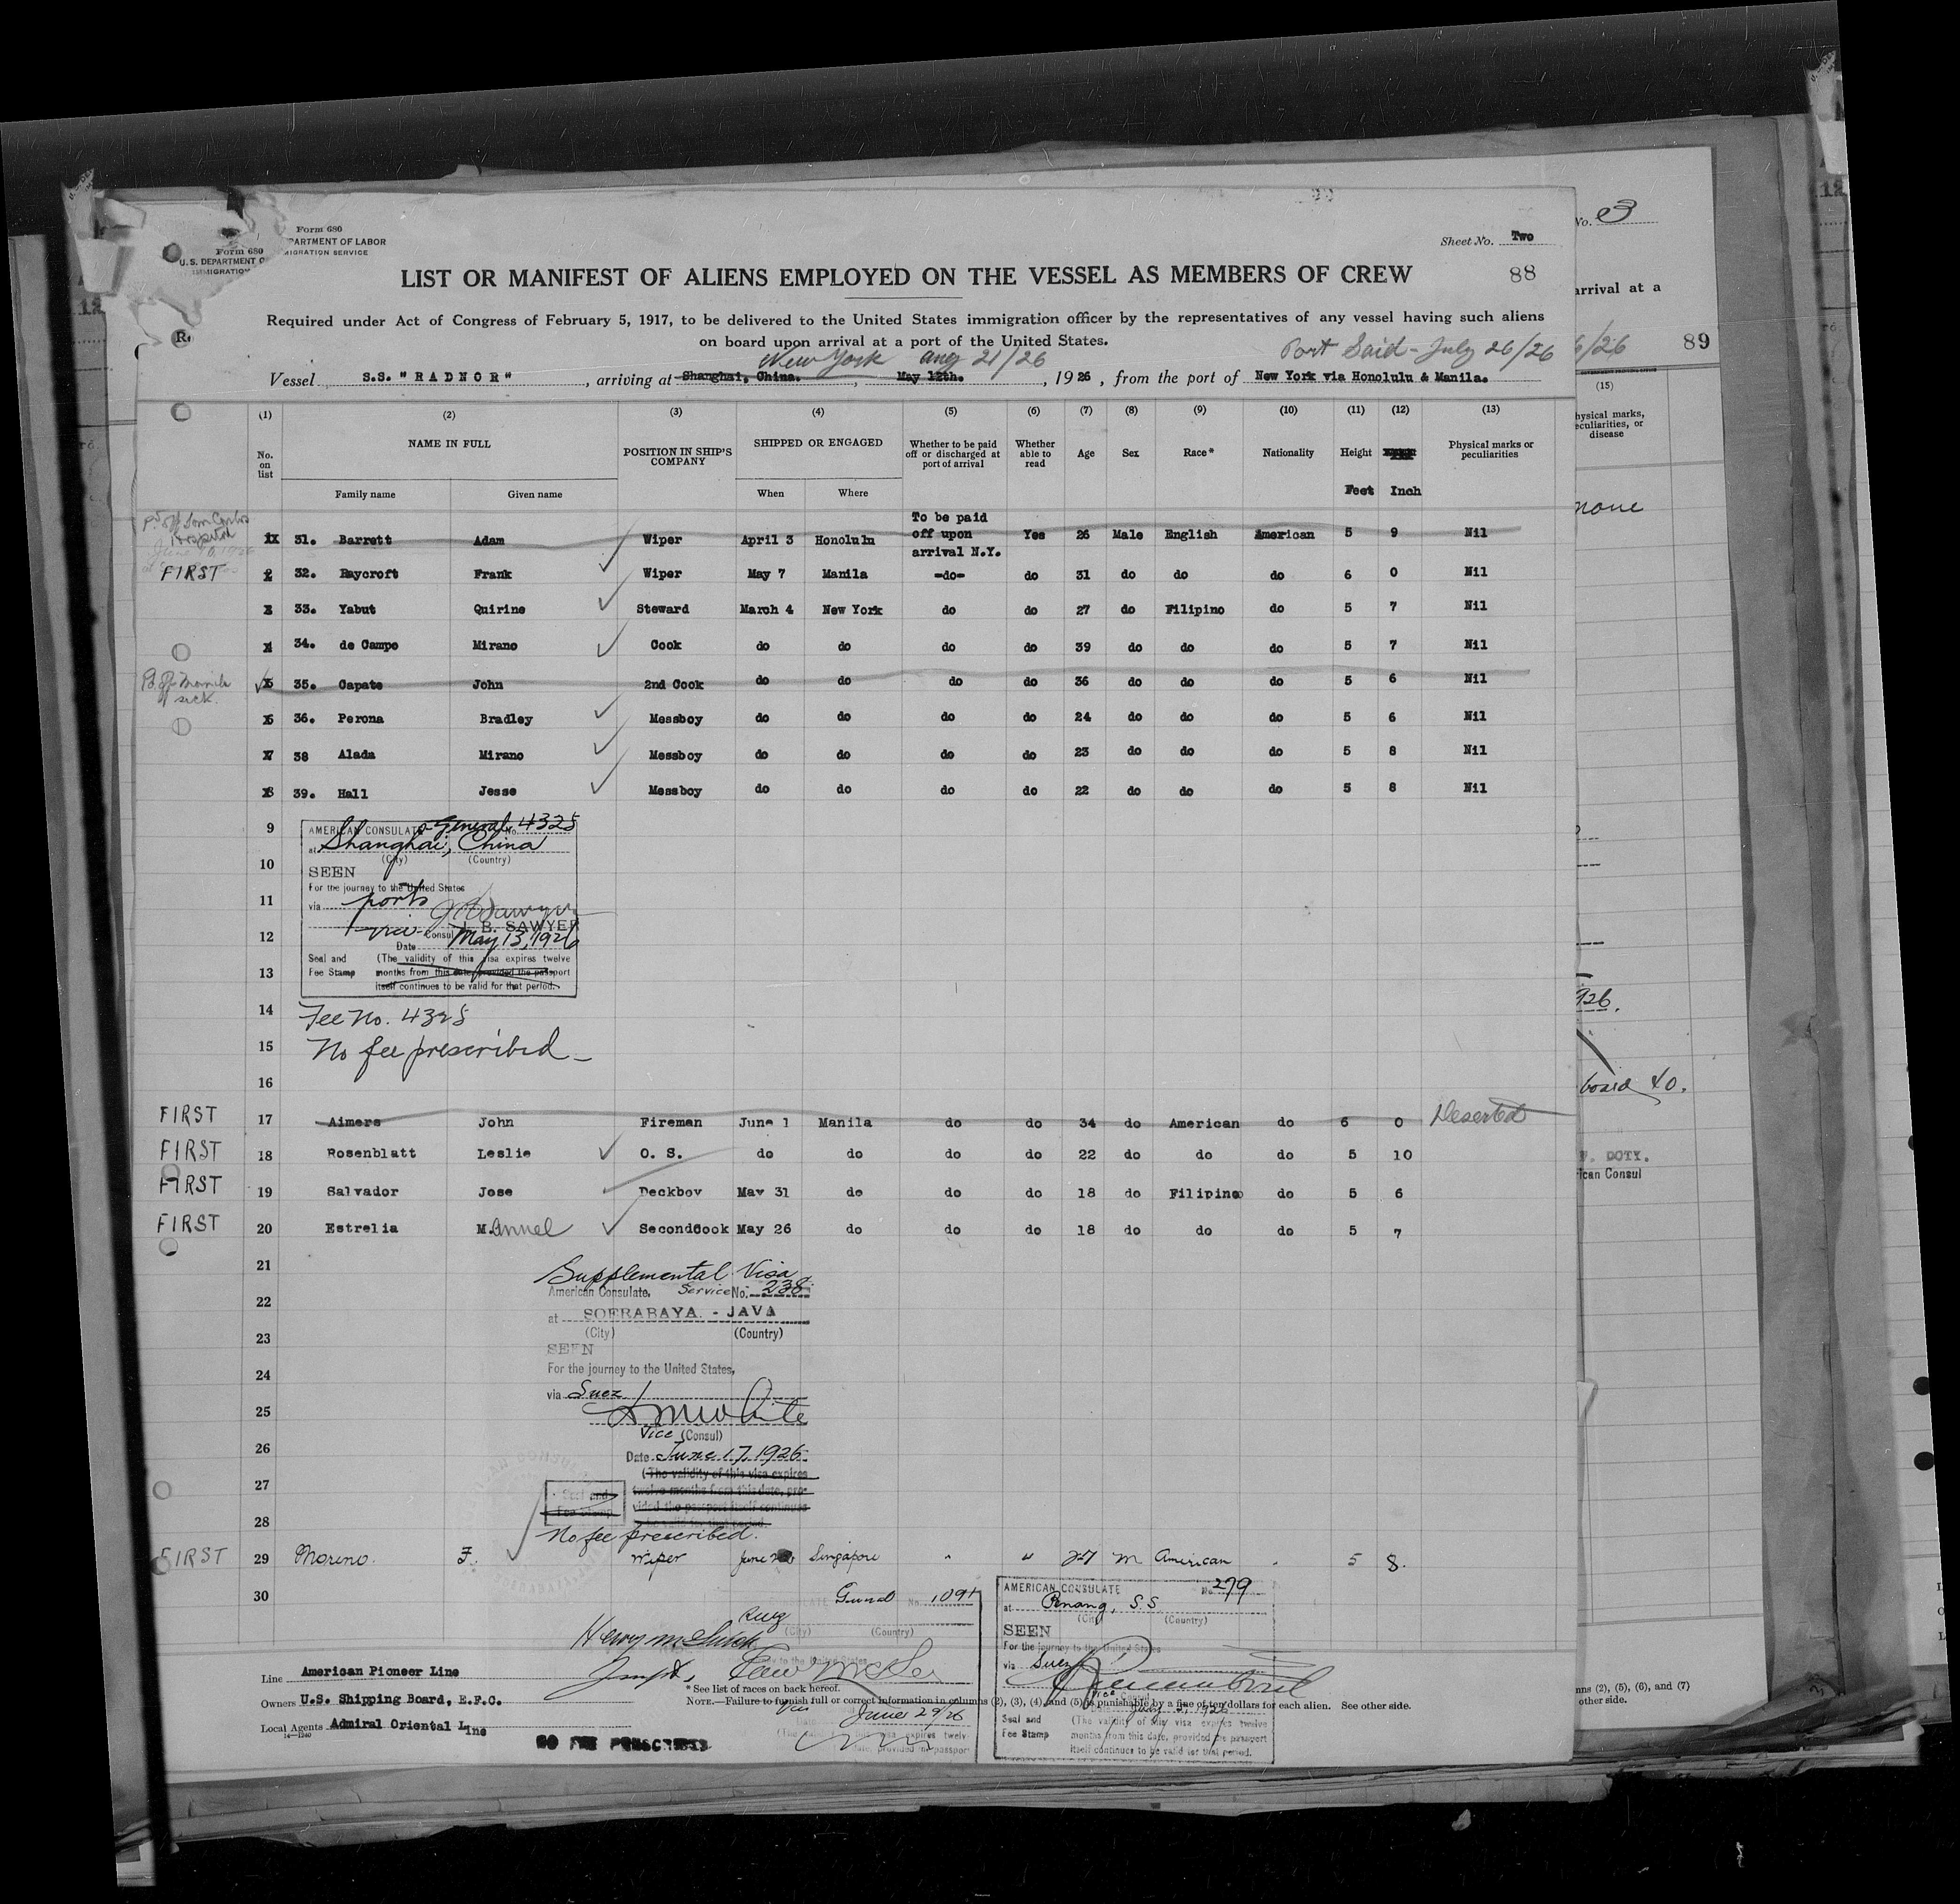 Form 680
PARTMENT OF LABOR
MIGRATION SERVICE
Form 680
U. S. DEPARTMENT O
IMMIGRATION
Sheet No. Two
LIST OR MANIFEST OF ALIENS EMPLOYED ON THE VESSEL AS MEMBERS OF CREW
88
Required under Act of Congress of February 5, 1917, to be delivered to the United States immigration officer by the representatives of any vessel having such aliens
on board upon arrival at a port of the United States.
New York Aug 21/26 Port Said - July 26/26
Vessel S.S. "RADNOR", arriving at Shanghai, China., May 12th., 1926, from the port of New York via Honolulu & Manila.
(1) (2) (3) (4) (5) (6) (7) (8) (9) (10) (11) (12) (13)
No. on list NAME IN FULL POSITION IN SHIP'S COMPANY SHIPPED OR ENGAGED Whether to be paid off or discharged at port of arrival Whether able to read Age Sex Race* Nationality Height Physical marks or peculiarities
Family name Given name When Where Feet Inch
31. Barrett Adam Wiper April 3 Honolulu To be paid off upon arrival N.Y. Yes 26 Male English American 5 9 Nil
FIRST 32. Raycroft Frank Wiper May 7 Manila -do- do 31 do do do 6 0 Nil
33. Yabut Quirine Steward March 4 New York do do 27 do Filipino do 5 7 Nil
34. de Campo Mirano Cook do do do do 39 do do do 5 7 Nil
35. Capate John 2nd Cook do do do do 36 do do do 5 6 Nil
sick.
36. Perona Bradley Messboy do do do do 24 do do do 5 6 Nil
38 Alada Mirano Messboy do do do do 23 do do do 5 8 Nil
39. Hall Jesse Messboy do do do do 22 do do do 5 8 Nil
9
AMERICAN CONSULATE General No. 4325
at Shanghai, China
(City) (Country)
10
SEEN
For the journey to the United States
11
via ports
J. B. SAWYER
12
Consul
Date May 13, 1926
Seal and (The validity of this visa expires twelve
13
Fee Stamp months from this date, provided the passport
itself continues to be valid for that period.
14
Fee No. 4325
15
No fee prescribed
16
FIRST 17 Aimers John Fireman June 1 Manila do do 34 do American do 6 0 Deserted
FIRST 18 Rosenblatt Leslie O. S. do do do do 22 do do do 5 10
FIRST 19 Salvador Jose Deckboy May 31 do do do 18 do Filipino do 5 6
FIRST 20 Estrelia M. Second Cook May 26 do do do 18 do do do 5 7
21
Supplemental Visa
American Consulate. Service No. 238
22
at SOERABAYA. - JAVA
23
(City) (Country)
SEEN
24
For the journey to the United States,
via Suez
25
Vice (Consul)
26
Date June 17, 1926
(The validity of this visa expires
27
twelve months from this date, pro-
vided the passport itself continues
28
be valid for that period.
Seal and
Fee Stamp
No fee prescribed.
FIRST 29 Moreno. F. Wiper June Singapore " " 27 M American " 5 8.
30
AMERICAN CONSULATE No. 279
at Penang, S.S.
(City) (Country)
SEEN
For the journey to the United States
via Suez
July 3, 1926
Seal and (The validity of this visa expires twelve
Fee Stamp months from this date, provided the passport
itself continues to be valid for that period.
(City) (Country)
June 29/26
Line American Pioneer Line
Owners U.S. Shipping Board, E.F.C.
Local Agents Admiral Oriental Line
14—1240
* See list of races on back hereof.
NOTE.—Failure to furnish full or correct information in columns (2), (3), (4), and (5) is punishable by a fine of ten dollars for each alien. See other side.
NO FEE PRESCRIBED
No. 3
arrival at a
89
(15)
hysical marks,
eculiarities, or
disease
none
926.
board 40.
F. DOTY.
ican Consul
ns (2), (5), (6), and (7)
other side.